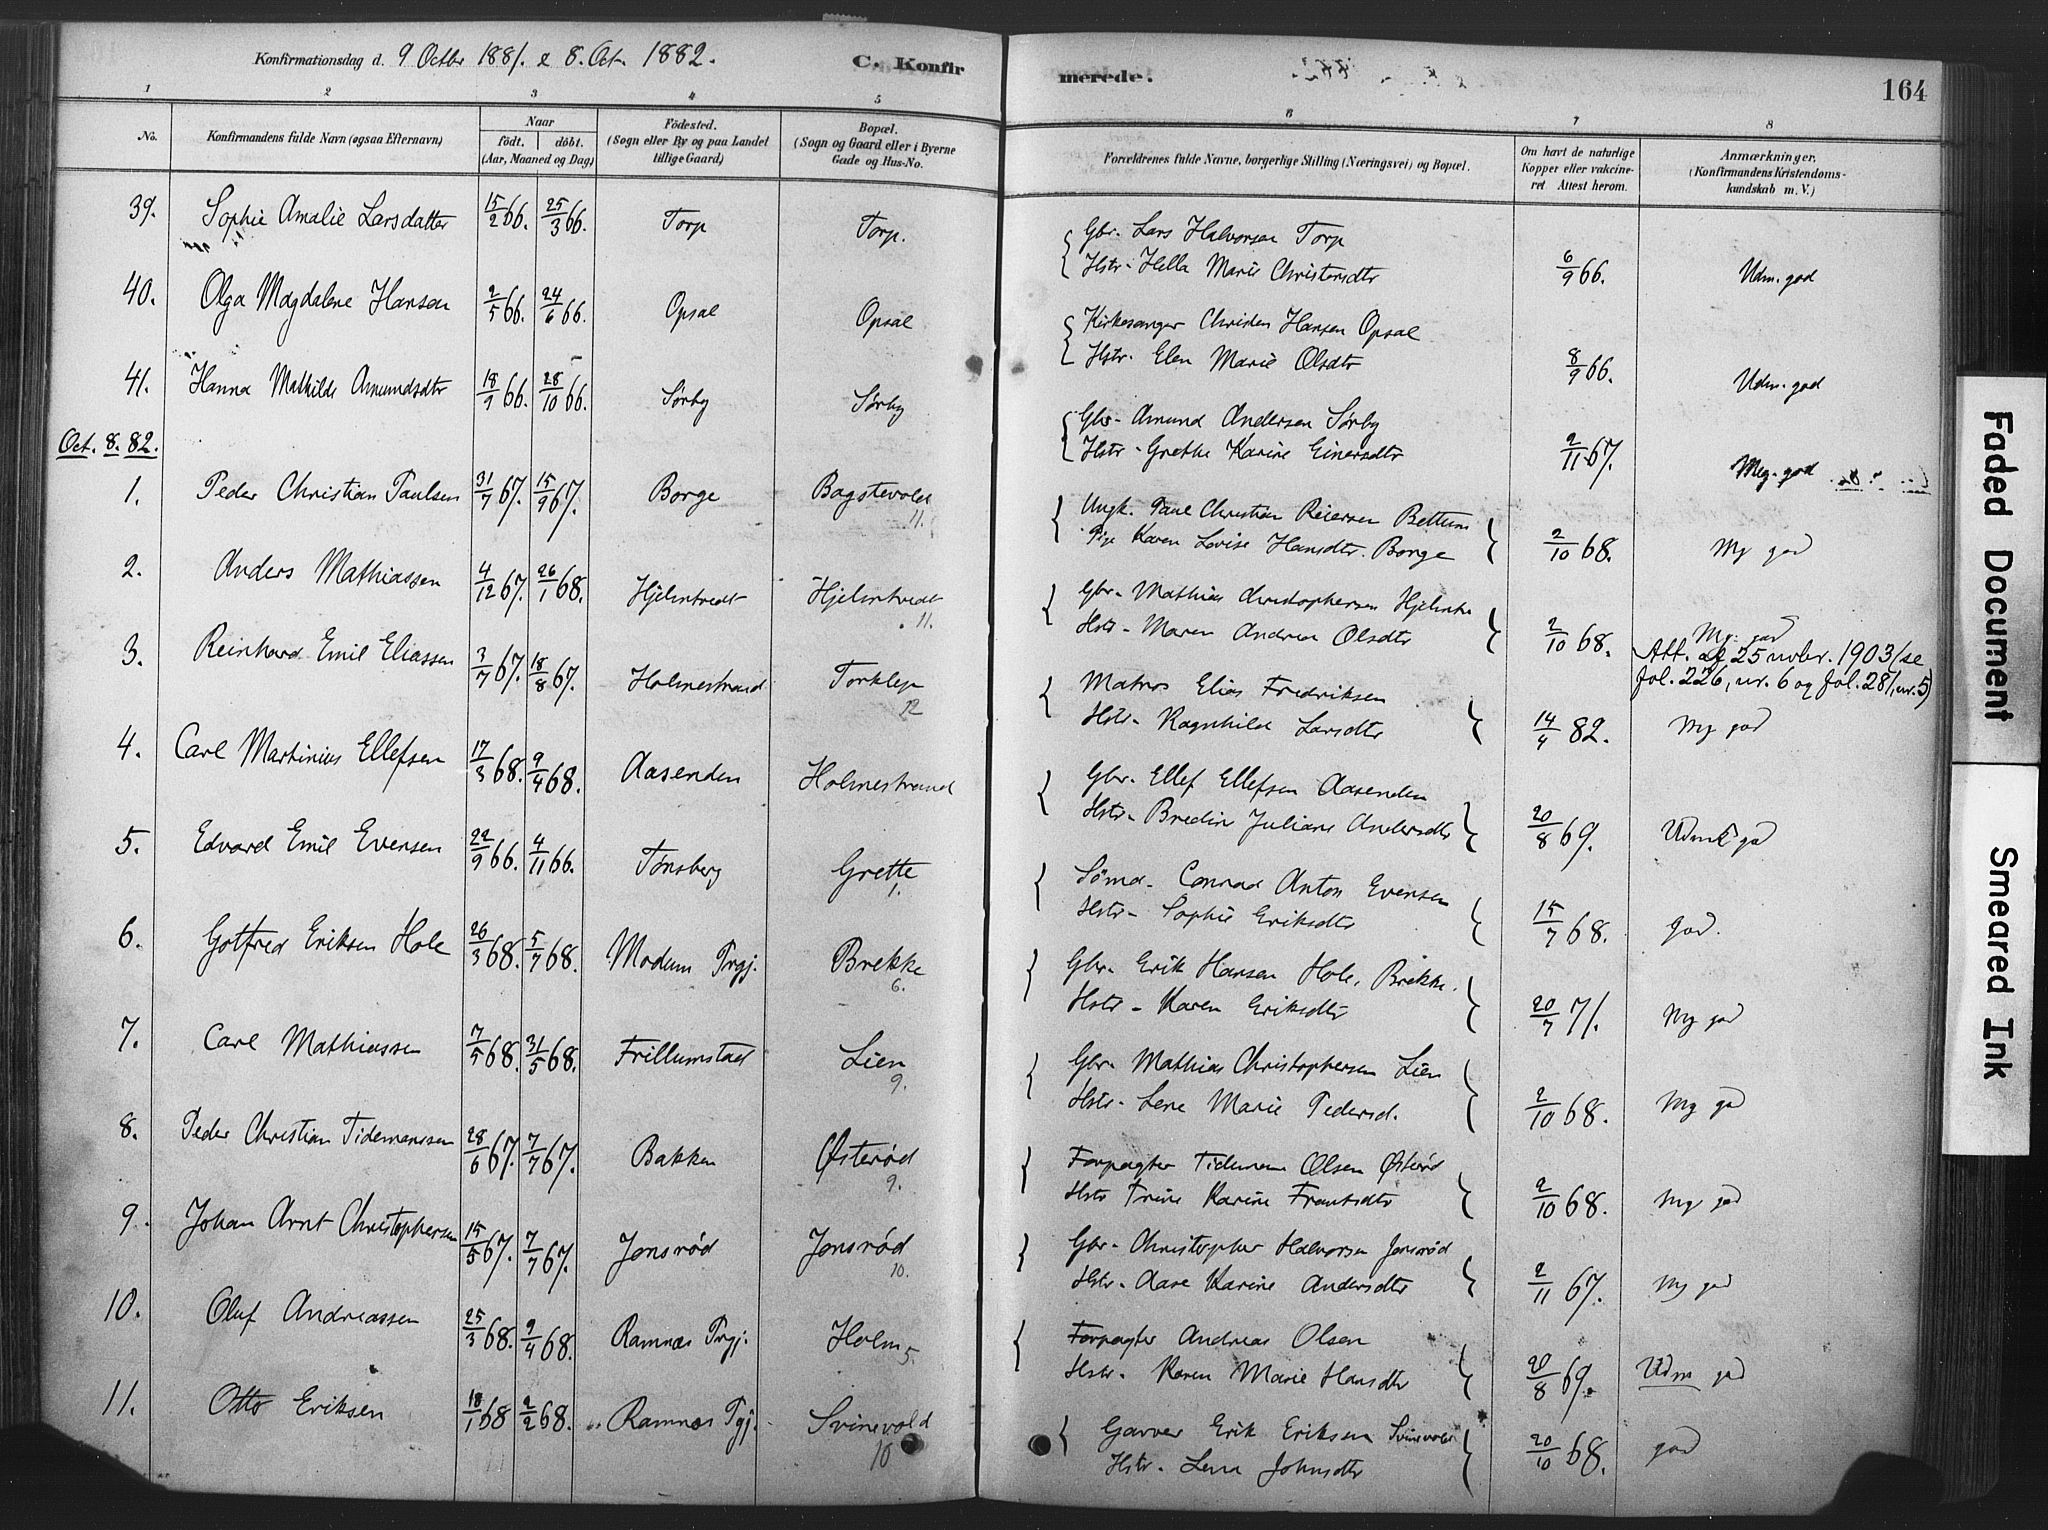 Konfirmationsdag d. 9 Octbr 1881. & 8. Oct. 1882. C. Konfirmerede. 164
1 2 3 4 5 6 7 8
No. Konfirmandens fulde Navn (ogsaa Efternavn) Naar født. døbt. (Aar, Maaned og Dag) Fødested. (Sogn eller By og paa Landet tillige Gaard) Bopæl. (Sogn og Gaard eller i Byerne Gade og Hus-No. Forældrenes fulde Navne, borgerlige Stilling (Næringsvei) og Bopæl. Om havt de naturlige Kopper eller vakcineret Attest herom. Anmærkninger. (Konfirmandens Kristendomskundskab m. V.)
39. Sophie Amalie Larsdatter 15/2 66. 25/3 66. Torp Torp. Gbr. Lars Halvorsen Torp 6/9 66. Udm. god
Hstr. Hella Marie Christensdtr
40. Olga Magdalene Hansen 2/5 66. 24/6 66. Opsal Opsal Kirkesanger Christen Hansen Opsal 8/9 66. Udm. god
Hstr. Elen Marie Olsdtr
41. Hanna Mathilde Amundsdtr 18/9 66. 28/10 66. Sørby Sørby Gbr. Amund Andersen Sørby 2/11 67. Meg. god
Hstr. Grethe Karine Einersdtr
Oct. 8. 82.
1. Peder Christian Paulsen 31/7 67. 15/9 67. Borge Bogstevold 11. Ungk. Paul Christian Reiersen Bettum 2/10 68. Mg god
Pige Karen Lovise Hansdtr. Borge
2. Anders Mathiassen 4/12 67. 26/1 68. Hjelmtvedt Hjelmtvedt 11. Gbr. Mathias Christophersen Hjelmtv 2/10 68. Mg. god
Hstr. Maren Andrea Olsdtr
Att. af 25 novbr. 1903 (se
fol. 226, nr. 6 og fol. 281, nr. 5)
3. Reinhard Emil Eliassen 3/7 67. 18/8 67. Holmestrand Torklep 12 Matros Elias Fredriksen 14/4 82. Mg god
Hstr. Ragnhild Larsdtr
4. Carl Martinius Ellefsen 17/3 68. 9/4 68. Aasenden Holmestrand Gbr. Ellef Ellefsen Aasenden 20/8 69. Udmk god
Hstr. Bredine Juliane Andersdtr
5. Edvard Emil Evensen 22/9 66. 4/11 66. Tønsberg Grette 1. Sømd. Conrad Anton Evensen 15/7 68. god.
Hstr. Sophie Eriksdtr
6. Gotfred Eriksen Hole 26/3 68. 5/7 68. Modum Prgj. Brekke 6. Gbr. Erik Hansen Hole, Brekke. 20/7 71. Mg god
Hstr. Karen Eriksdtr
7. Carl Mathiassen 7/5 68. 31/5 68. Frillumstad Lien 9. Gbr. Mathias Christophersen Lien 2/10 68. Mg god
Hstr. Lene Marie Pedersd.
8. Peder Christian Tidemanssen 28/6 67. 7/7 67. Bakken Østerød 9. Forpagter Tideman Olsen Østerød 2/10 68. Mg god
Hstr Trine Karine Frantsdtr
9. Johan Arnt Christophersen 15/5 67. 7/7 67. Jonsrød Jonsrød 10. Gbr. Christopher Halvorsen Jonsrød 2/11 67. Mg god
Hstr. Aase Karine Andersdtr
10. Oluf Andreassen 25/3 68. 9/4 68. Ramnæs Prgj. Holm 5. Forpagter Andreas Olsen 20/8 69. Udm god
Hstr. Karen Marie Hansdtr
11. Otto Eriksen 18/1 68 2/2 68. Ramnæs Pgj. Svinevold 10 Garver Erik Eriksen Svinevold 20/10 68. god
Hstr. Lena Johnsdtr
Faded Document
Smeared Ink